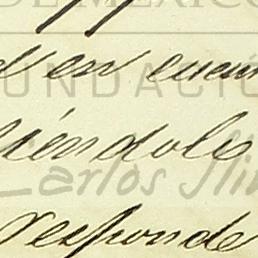 DE MÉXICO
d en cuen
FUNDACIÓ
iéndoles
Carlos Sli
responde